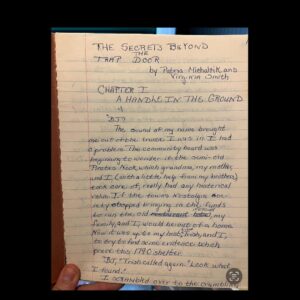 THE SECRETS BEYOND
THE
TRAP DOOR
by Patricia Michaltsik and
Virginia Smith
CHAPTER I
A HANDLE IN THE GROUND
"BJ!"
The sound of my name brought
me out of the trance I was in. I had
a problem. The community board was
beginning to wonder if the semi-old
Pirates Nook, which grandma, my mother,
and I, (with a little help from my brothers)
took care of, really had any historical
value. If the town's Nostalgia Soc-
iety stopped bringing in the funds
to run the old restaurant hotel, my
family, and I, would be out of a home.
Now it was up to my best friend, Trish, and I,
to try to find some evidence which
prove this 1780 shelter.
"BJ," Trish called again. "Look what
I found!"
I scrambled over to the crumbling